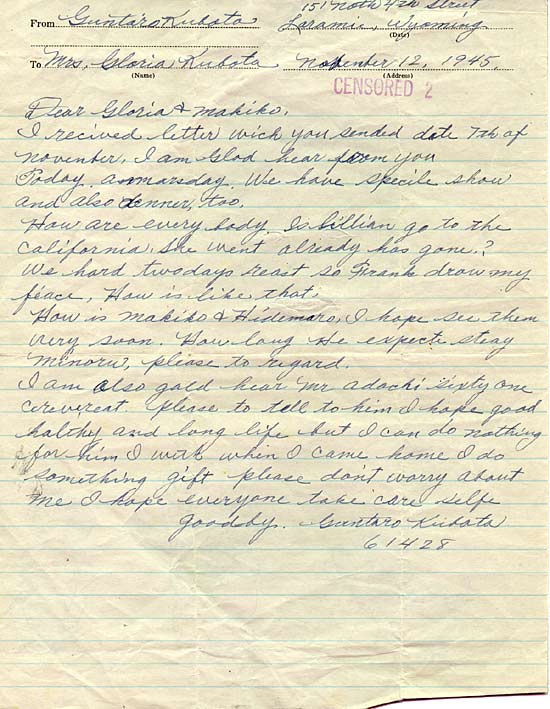 151 Noth 4th Street
From Guntaro Kubota Laramie, Wyoming
(Date)
To Mrs. Gloria Kubota November 12, 1945.
(Name) (Address)
CENSORED 2
Dear Gloria & Makiko,
I recived letter wich you sended date 7th of
November, I am Glad hear from you
Today. We have specile show
and also denner, too.
How are every body. Is Lillian go to the
California, She went already has gone.?
We hard two days reast so Frank drow my
feace, How is like that.
How is Makiko & Hidemaro, I hope see them
very soon. How long He expecte steay
Minoru, please to regard.
I am also gald hear Mr Adachi sixty one
please to tell to him I hope good
halthy and long life but I can do nothing
for him I with when I came home I do
something gift please don't worry about
me I hope everyone take care selfe
goodby. Guntaro Kubota
61428